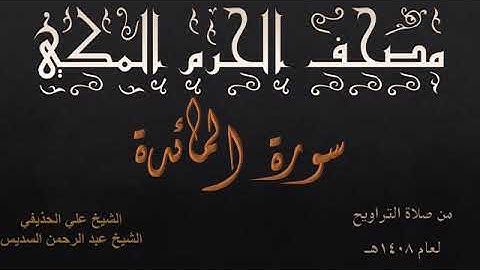 مصحف الحرم المكي
سورة المائدة
من صلاة التراويح
لعام ١٤٠٨هـ
الشيخ علي الحذيفي
الشيخ عبد الرحمن السديس